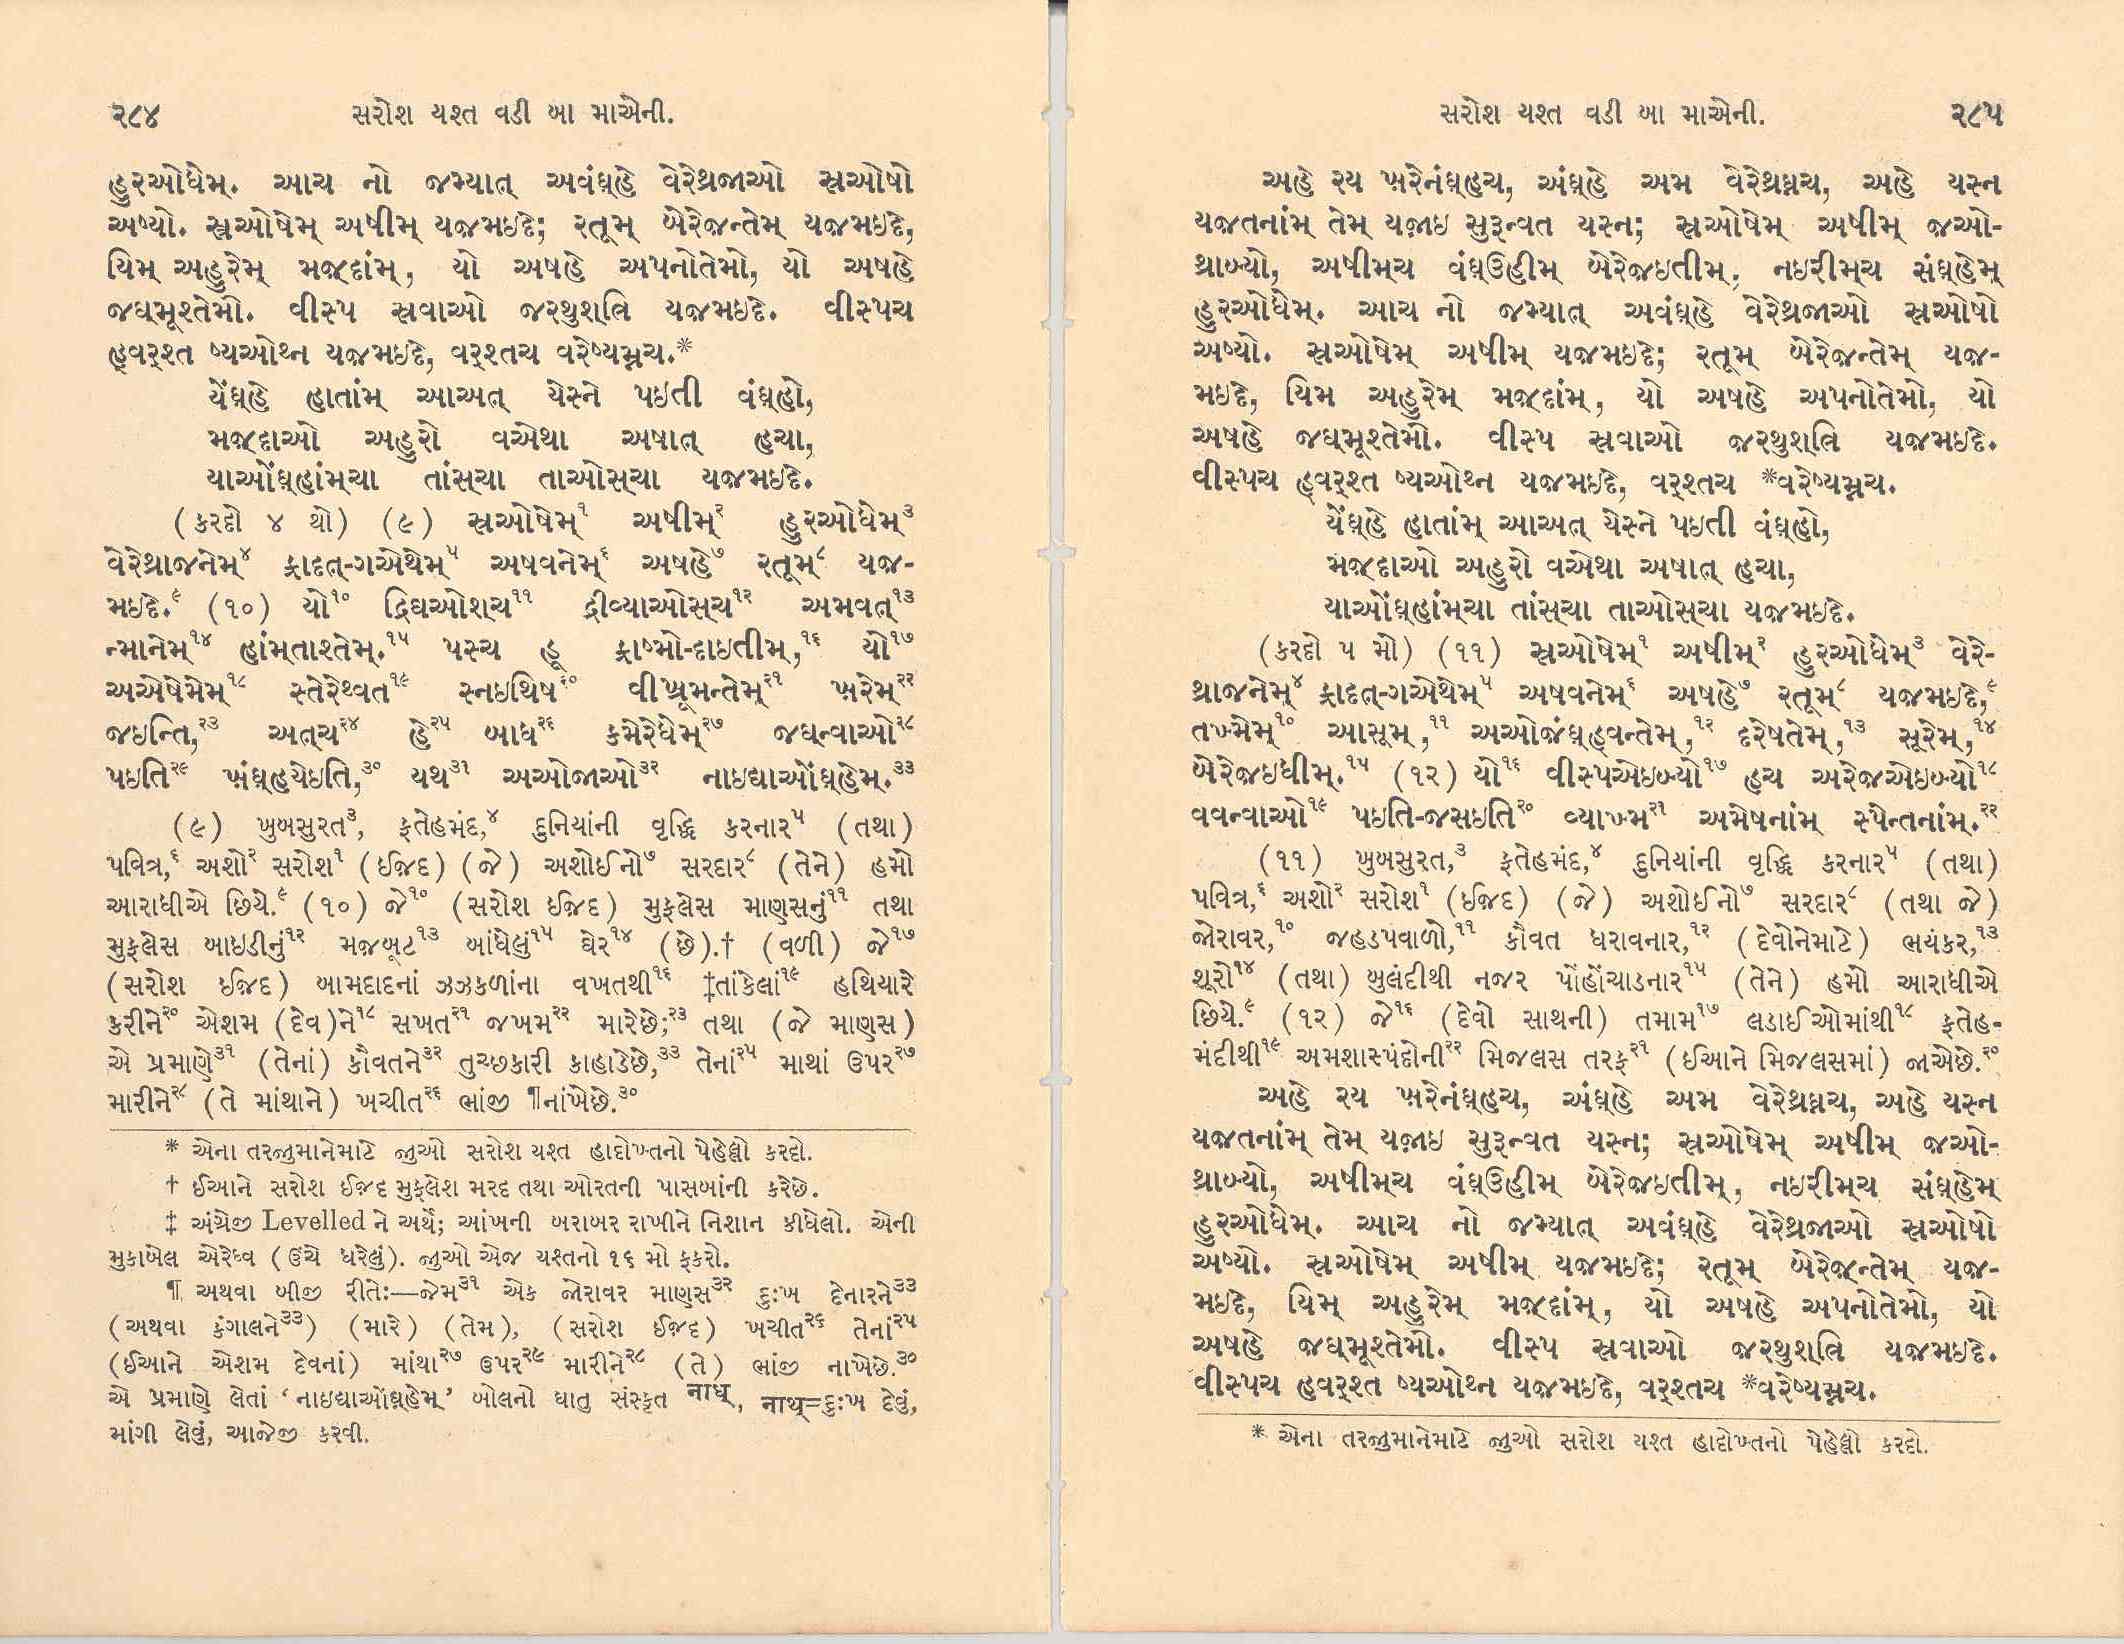 ૨૮૪ સરોશ યશ્ત વડી બા માએની.
હુરઓધેમ્. આચ નો જમ્યાત્ અવંઘ્હે વેરેથ્રજાઓ સ્રઓષો
અષ્યો. સ્રઓષેમ્ અષીમ્ યજમઇદે; રતૂમ્ બેરેજન્તેમ્ યજમઇદે,
યિમ્ અહુરેમ્ મજ્દાંમ્, યો અષહે અપનોતેમો, યો અષહે
જઘ્મૂશ્તેમો. વીસ્પ સ્રવાઓ જરથુશ્ત્રિ યજમઇદે. વીસ્પચ
હ્વર્શ્ત ષ્યઓથ્ન યજમઇદે, વર્શ્તચ વરેષ્યમ્નચ.*
યેંઘ્હે હાતાંમ્ આઅત્ યેસ્ને પઇતી વંઘ્હો,
મજ્દાઓ અહુરો વએથા અષાત્ હચા,
યાઓંઘ્હાંમ્ચા તાંસ્ચા તાઓસ્ચા યજમઇદે.
(કરદો ૪ થો) (૯) સ્રઓષેમ્૧ અષીમ્૨ હુરઓધેમ્૩
વેરેથ્રાજનેમ્૪ ફ્રાદત્-ગએથેમ્૫ અષવનેમ્૬ અષહે૭ રતૂમ્૮ યજ-
મઇદે.૯ (૧૦) યો૧૦ દ્રિઘઓશ્ચ૧૧ દ્રીવ્યાઓસ્ચ૧૨ અમવત્૧૩
ન્માનેમ્૧૪ હાંમ્તાશ્તેમ્.૧૫ પસ્ચ હૂ ફ્રાષ્મો-દાઇતીમ્,૧૬ યો૧૭
અએષેમેમ્૧૮ સ્તેરેથ્વત૧૯ સ્નઇથિષ૨૦ વીખ્રૂમન્તેમ્૨૧ ખ઼રેમ્૨૨
જઇન્તિ,૨૩ અત્ચ૨૪ હે૨૫ બાધ૨૬ કમેરેધેમ્૨૭ જઘ્ન્વાઓ૨૮
પઇતિ૨૯ ખ઼ંઘ્હયેઇતિ,૩૦ યથ૩૧ અઓજાઓ૩૨ નાઇદ્યાઓંઘ્હેમ્.૩૩
(૯) ખુબસુરત૩, ફતેહમંદ,૪ દુનિયાંની વૃદ્ધિ કરનાર૫ (તથા)
પવિત્ર,૬ અશો૨ સરોશ૧ (ઈજ઼દ) (જે) અશોઈનો૭ સરદાર૮ (તેને) હમો
આરાધીએ છિયે.૯ (૧૦) જે૧૦ (સરોશ ઈજ઼દ) મુફલેસ માણસનું૧૧ તથા
મુફલેસ બાઇડીનું૧૨ મજબૂટ૧૩ બાંધેલું૧૫ ઘેર૧૪ (છે).† (વળી) જે૧૭
(સરોશ ઈજ઼દ) બામદાદનાં ઝઝકળાંના વખતથી૧૬ ‡તાંકેલાં૧૯ હથિયારે
કરીને૨૦ એશમ (દેવ)ને૧૮ સખત૨૧ જખમ૨૨ મારેછે;૨૩ તથા (જે માણસ)
એ પ્રમાણે૩૧ (તેનાં) કૌવતને૩૨ તુચ્છકારી કાહાડેછે,૩૩ તેનાં૨૫ માથાં ઉપર૨૭
મારીને૨૮ (તે માંથાને) ખચીત૨૬ ભાંજી ¶નાંખેછે.૩૦
* એના તરજુમાનેમાટે જુઓ સરોશ યશ્ત હાદોખ્તનો પેહેલ્લો કરદો.
† ઈઆને સરોશ ઈજ઼દ મુફલેશ મરદ તથા ઓરતની પાસબાંની કરેછે.
‡ અંગ્રેજી Levelled ને અર્થે; આંખની બરાબર રાખીને નિશાન કીધેલો. એની
મુકાબેલ એરેધ્વ (ઉંચે ધરેલું). જુઓ એજ યશ્તનો ૧૬ મો ફકરો.
¶ અથવા બીજી રીતેઃ—જેમ૩૧ એક જોરાવર માણસ૩૨ દુઃખ દેનારને૩૩
(અથવા કંગાલને૩૩) (મારે) (તેમ), (સરોશ ઈજ઼દ) ખચીત૨૬ તેનાં૨૫
(ઈઆને એશમ દેવનાં) માંથા૨૭ ઉપર૨૯ મારીને૨૮ (તે) ભાંજી નાખેછે.૩૦
એ પ્રમાણે લેતાં ‘નાઇદ્યાઓંઘ્હેમ્’ બોલનો ધાતુ સંસ્કૃત नाध्, नाथ्=દુઃખ દેવું,
માંગી લેવું, આજેજી કરવી.
સરોશ યશ્ત વડી બા માએની. ૨૮૫
અહે રય ખ઼રેનંઘ્હચ, અંઘ્હે અમ વેરેથ્રઘ્નચ, અહે યસ્ન
યજતનાંમ્ તેમ્ યજાઇ સુરૂન્વત યસ્ન; સ્રઓષેમ્ અષીમ્ જઓ-
થ્રાબ્યો, અષીમ્ચ વંઘ્ઉહીમ્ બેરેજઇતીમ્, નઇરીમ્ચ સંઘ્હેમ્
હુરઓધેમ્. આચ નો જમ્યાત્ અવંઘ્હે વેરેથ્રજાઓ સ્રઓષો
અષ્યો. સ્રઓષેમ્ અષીમ્ યજમઇદે; રતૂમ્ બેરેજન્તેમ્ યજ-
મઇદે, યિમ અહુરેમ્ મજ્દાંમ્, યો અષહે અપનોતેમો, યો
અષહે જઘ્મૂશ્તેમો. વીસ્પ સ્રવાઓ જરથુશ્ત્રિ યજમઇદે.
વીસ્પચ હ્વર્શ્ત ષ્યઓથ્ન યજમઇદે, વર્શ્તચ *વરેષ્યમ્નચ.
યેંઘ્હે હાતાંમ્ આઅત્ યેસ્ને પઇતી વંઘ્હો,
મજ્દાઓ અહુરો વએથા અષાત્ હચા,
યાઓંઘ્હાંમ્ચા તાંસ્ચા તાઓસ્ચા યજમઇદે.
(કરદો ૫ મો) (૧૧) સ્રઓષેમ્૧ અષીમ્૨ હુરઓધેમ્૩ વેરે-
થ્રાજનેમ્૪ ફ્રાદત્-ગએથેમ્૫ અષવનેમ્૬ અષહે૭ રતૂમ્૮ યજમઇદે,૯
તખ્મેમ્૧૦ આસૂમ્,૧૧ અઓજંઘ્હ્વન્તેમ્,૧૨ દરેષતેમ્,૧૩ સૂરેમ્,૧૪
બેરેજઇધીમ્.૧૫ (૧૨) યો૧૬ વીસ્પએઇબ્યો૧૭ હચ અરેજએઇબ્યો૧૮
વવન્વાઓ૧૯ પઇતિ-જસઇતિ૨૦ વ્યાખ્મ૨૧ અમેષનાંમ્ સ્પેન્તનાંમ્.૨૨
(૧૧) ખુબસુરત,૩ ફતેહમંદ,૪ દુનિયાંની વૃદ્ધિ કરનાર૫ (તથા)
પવિત્ર,૬ અશો૨ સરોશ૧ (ઈજ઼દ) (જે) અશોઈનો૭ સરદાર૮ (તથા જે)
જોરાવર,૧૦ જહડપવાળો,૧૧ કૌવત ધરાવનાર,૧૨ (દેવોનેમાટે) ભયંકર,૧૩
શૂરો૧૪ (તથા) બુલંદીથી નજર પોંહોંચાડનાર૧૫ (તેને) હમો આરાધીએ
છિયે.૯ (૧૨) જે૧૬ (દેવો સાથની) તમામ૧૭ લડાઈઓમાંથી૧૮ ફતેહ-
મંદીથી૧૯ અમશાસ્પંદોની૨૨ મિજલસ તરફ૨૧ (ઈઆને મિજલસમાં) જાએછે.૨૦
અહે રય ખ઼રેનંઘ્હચ, અંઘ્હે અમ વેરેથ્રઘ્નચ, અહે યસ્ન
યજતનાંમ્ તેમ્ યજાઇ સુરૂન્વત યસ્ન; સ્રઓષેમ્ અષીમ્ જઓ-
થ્રાબ્યો, અષીમ્ચ વંઘ્ઉહીમ્ બેરેજઇતીમ્, નઇરીમ્ચ સંઘ્હેમ્
હુરઓધેમ્. આચ નો જમ્યાત્ અવંઘ્હે વેરેથ્રજાઓ સ્રઓષો
અષ્યો. સ્રઓષેમ્ અષીમ્ યજમઇદે; રતૂમ્ બેરેજ્ન્તેમ્ યજ-
મઇદે, યિમ્ અહુરેમ્ મજ્દાંમ્, યો અષહે અપનોતેમો, યો
અષહે જઘ્મૂશ્તેમો. વીસ્પ સ્રવાઓ જરથુશ્ત્રિ યજમઇદે.
વીસ્પચ હ્વર્શ્ત ષ્યઓથ્ન યજમઇદે, વર્શ્તચ *વરેષ્યમ્નચ.
* એના તરજુમાનેમાટે જુઓ સરોશ યશ્ત હાદોખ્તનો પેહેલ્લો કરદો.